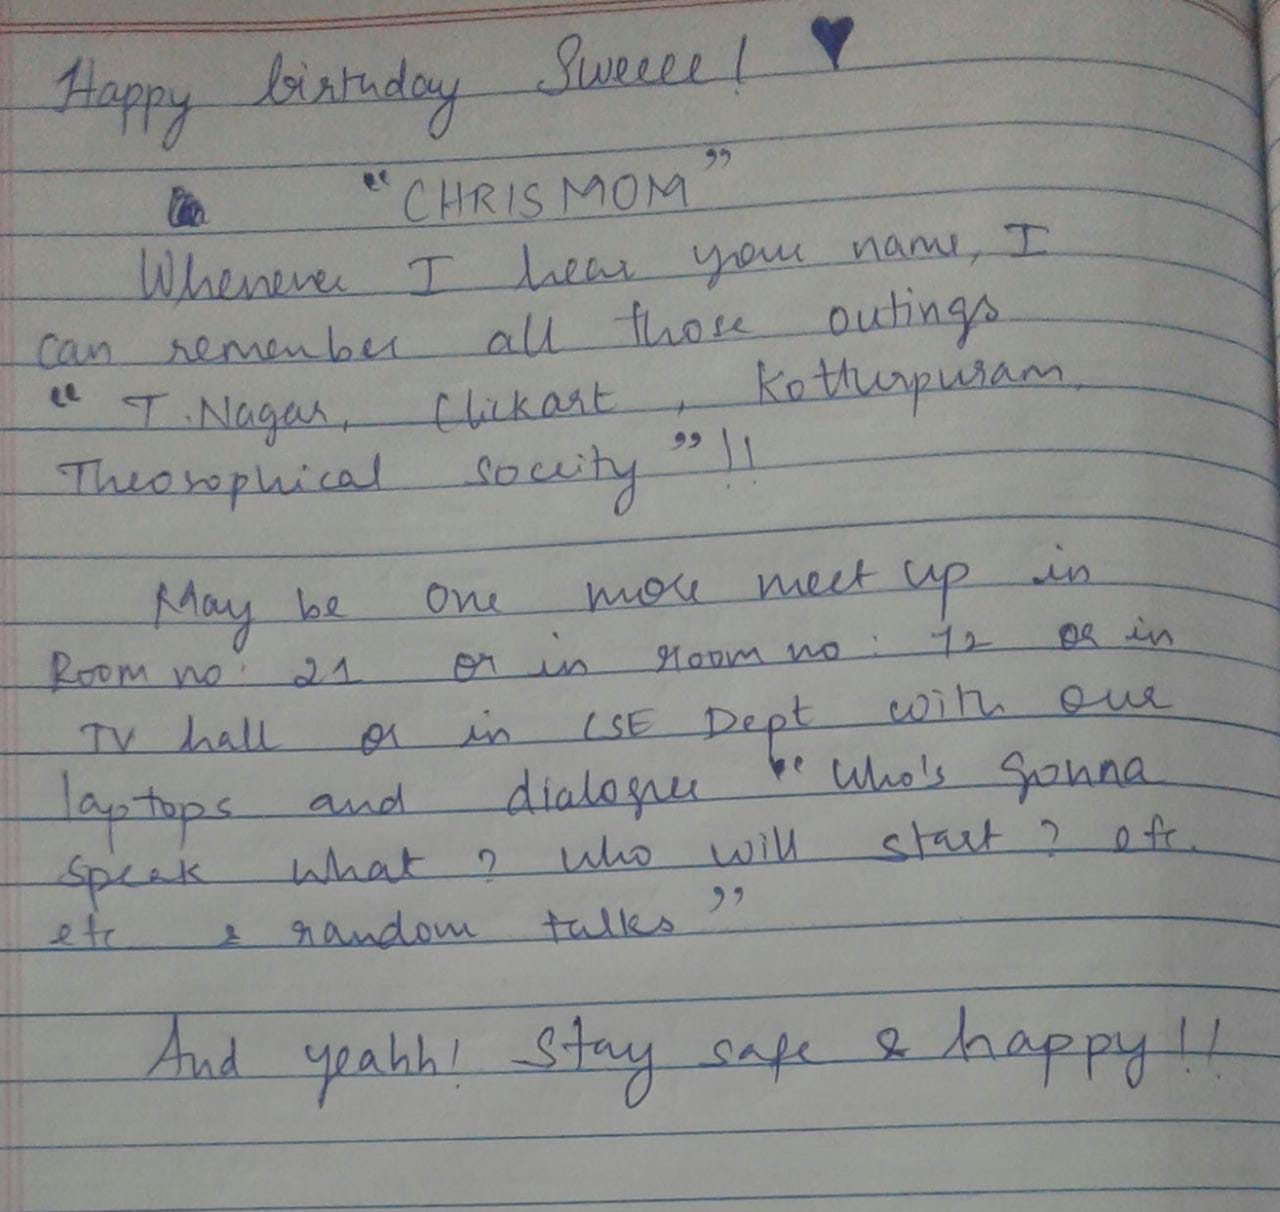 Happy birthday Sweeee! ♥
"CHRISMOM"
Whenever I hear your name, I
can remember all those outings
" T. Nagar, Clickart , Kotturpuram,
Theosophical socity "!!
May be one more meet up in
Room no: 21 or in room no: 72 or in
TV hall or in CSE Dept with our
laptops and dialogue " Who's gonna
speak what ? who will start ? etc.
etc & random talks "
And yeahh! Stay safe & happy!!